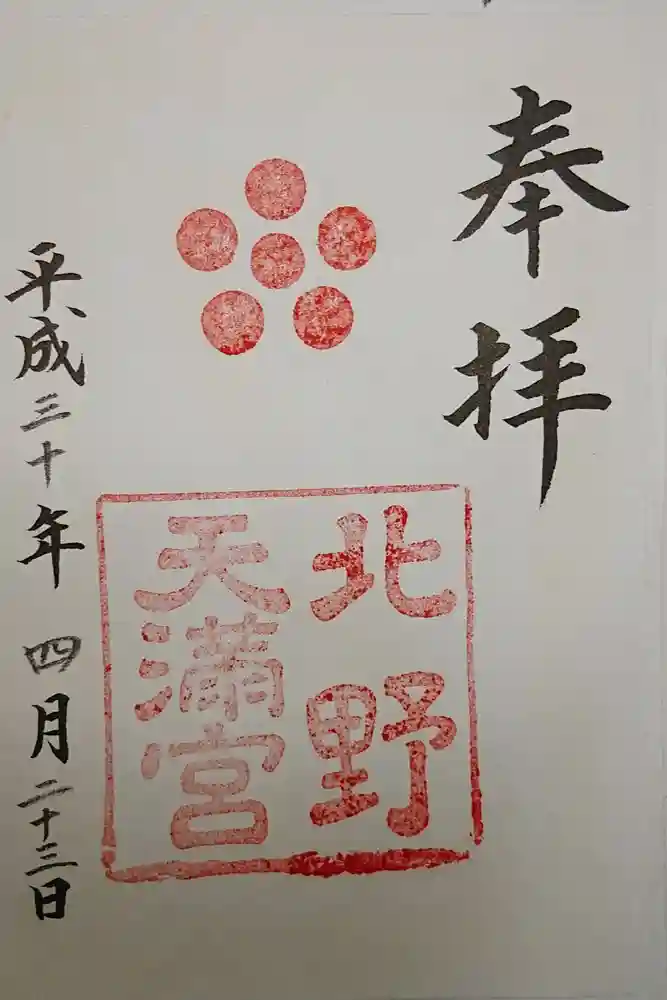 奉拝
北野
天満宮
平成三十年四月二十三日